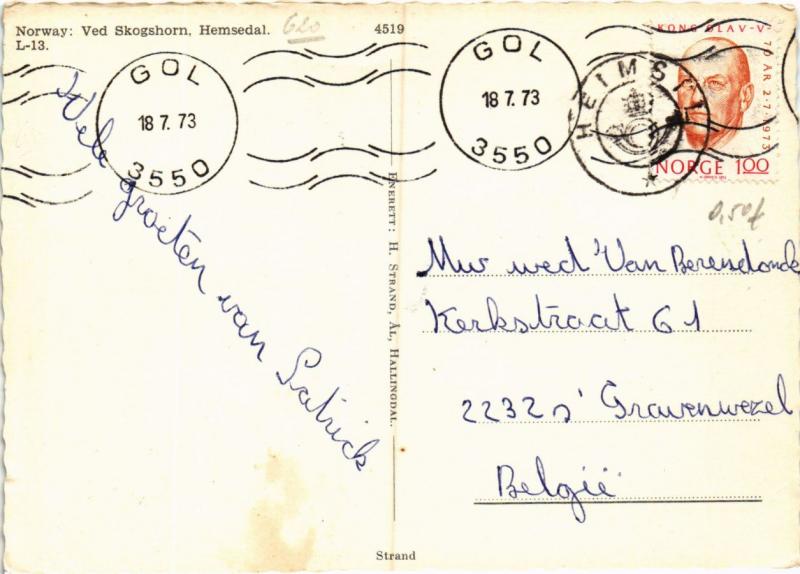 Norway: Ved Skogshorn, Hemsedal.
L-13.
620
4519
GOL
18 7. 73
3550
GOL
18 7. 73
3550
HEIMSIL
KONG OLAV-V-70 ÅR 2·7·1973
NORGE 1.00
0,50f
Vele groeten van Patrick
ENERETT: H. STRAND, ÅL, HALLINGDAL.
Mw wed Van Berendonck
Kerkstraat 61
2232 s' Gravenwezel
België
Strand